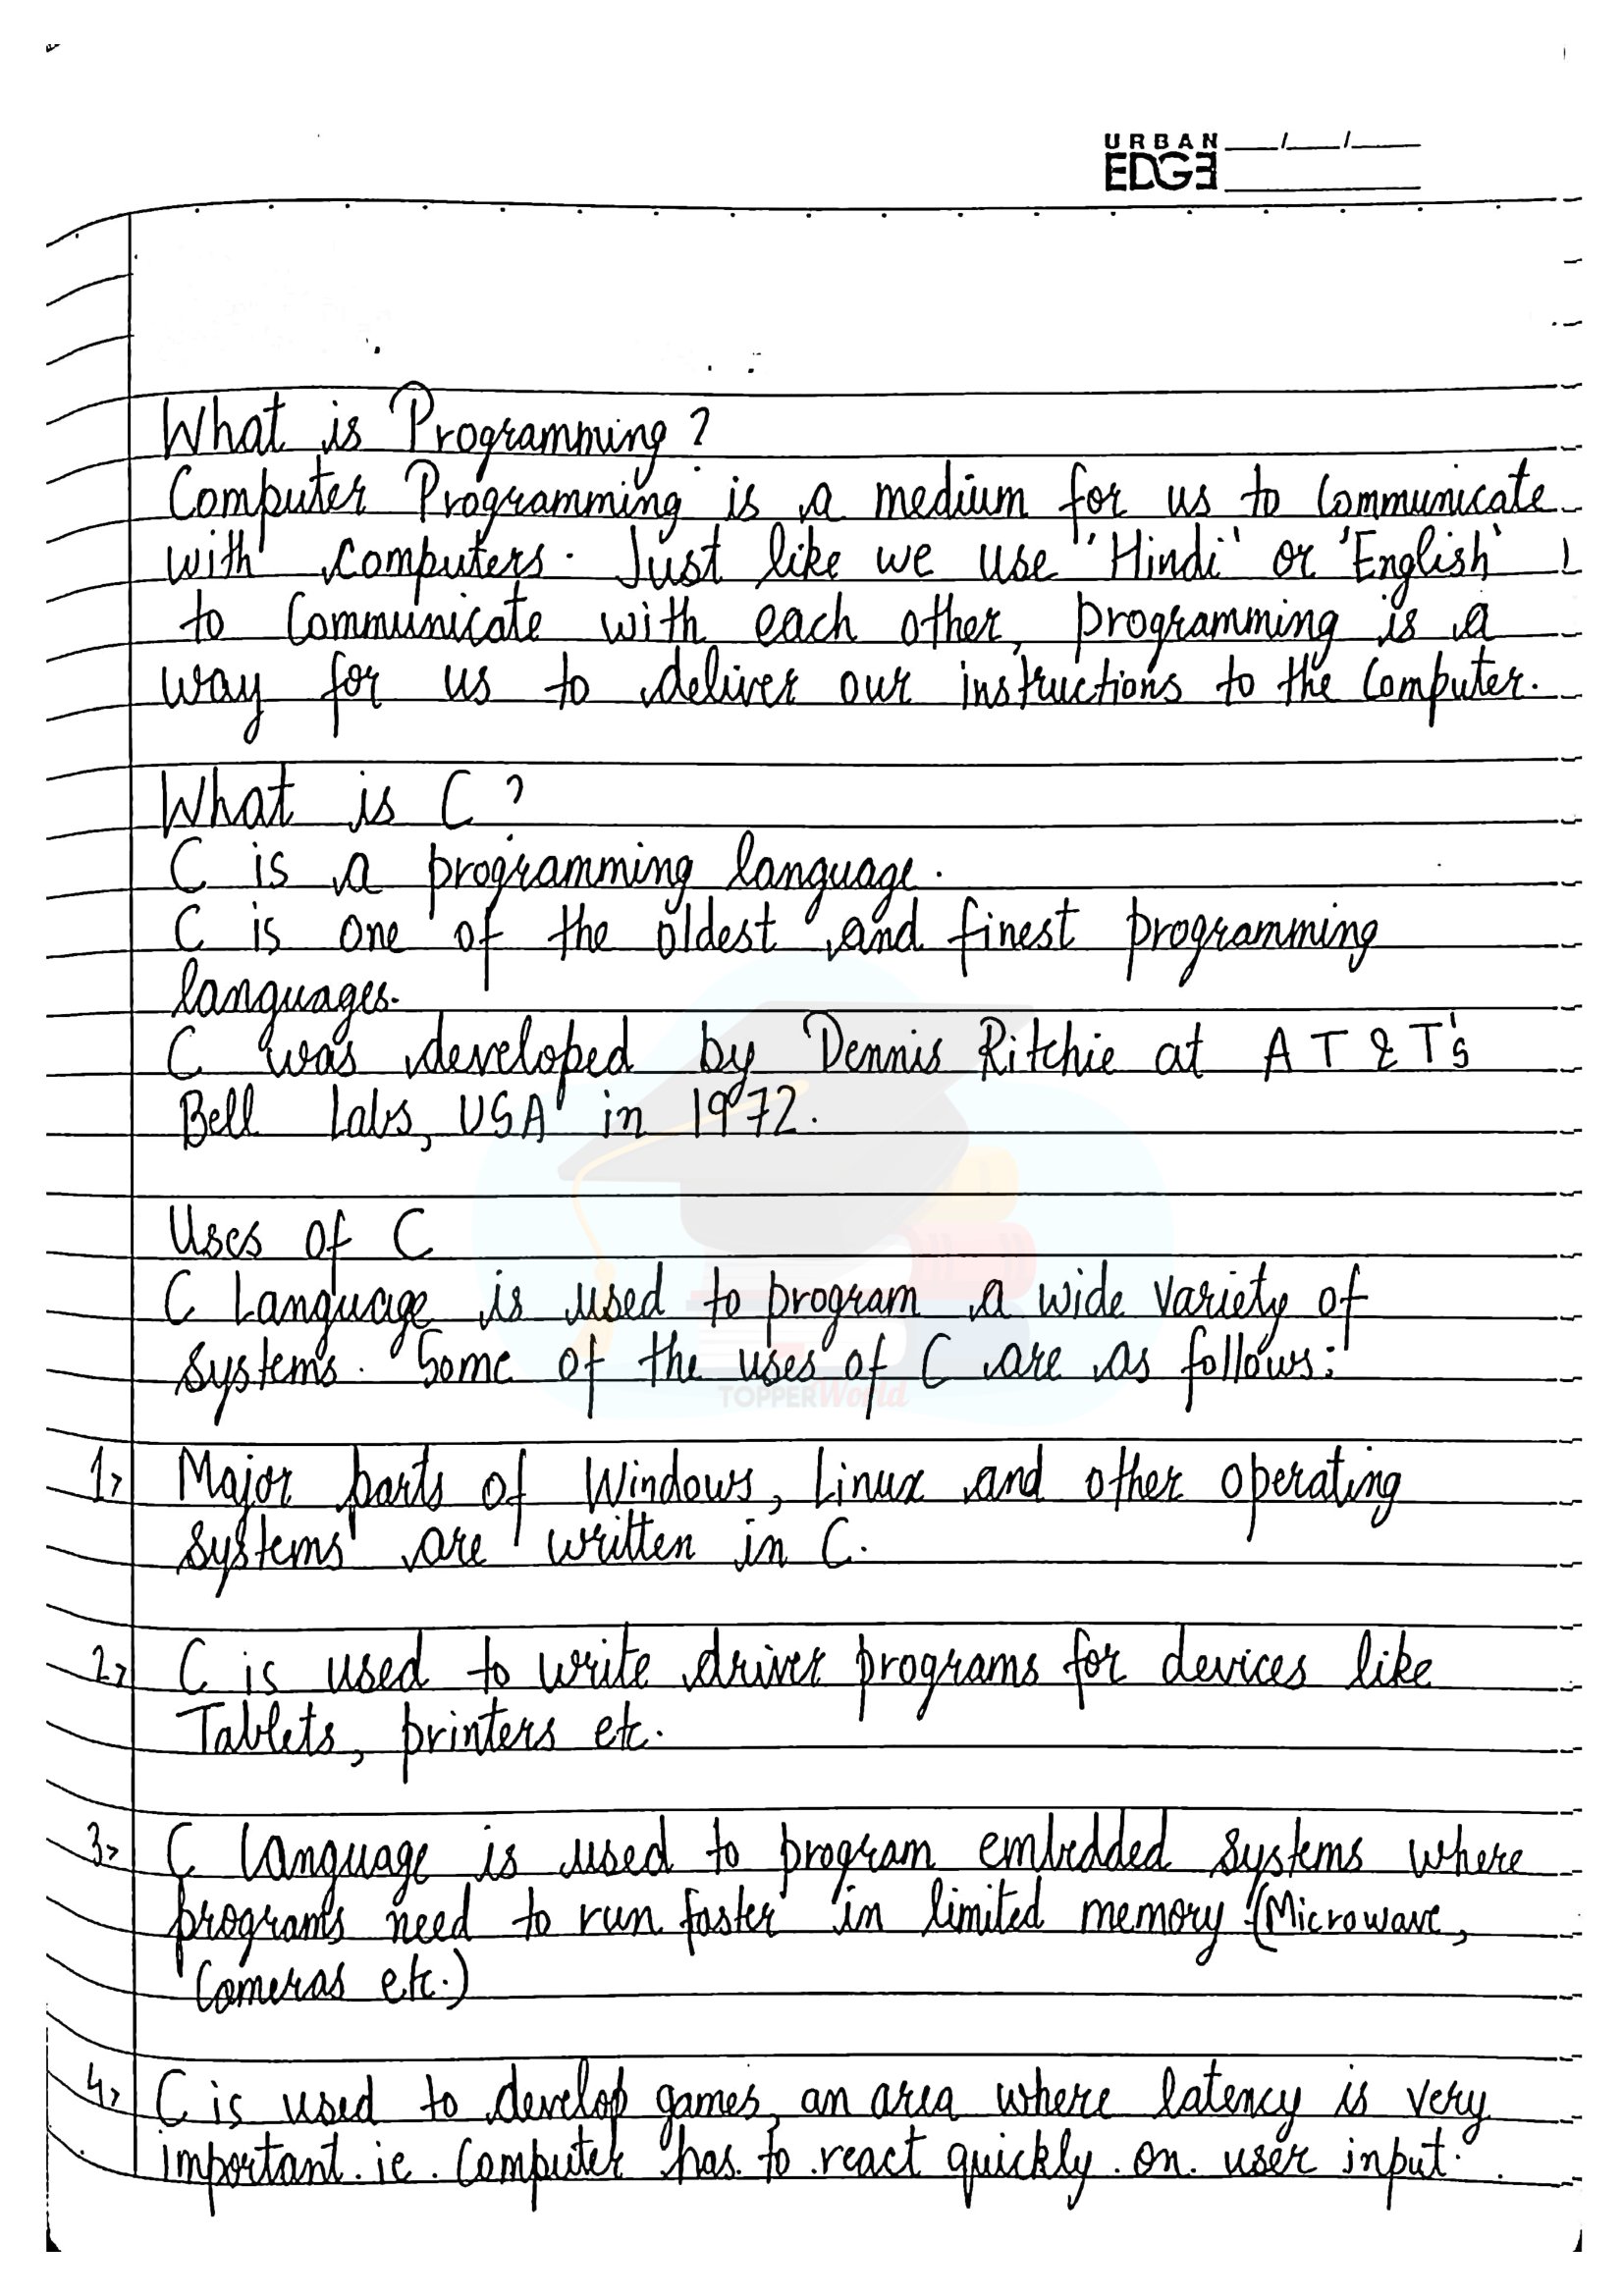 URBAN
EDGE
What is Programming?
Computer Programming is a medium for us to Communicate
with computers. Just like we use 'Hindi' or 'English'
to Communicate with each other, programming is a
way for us to deliver our instructions to the Computer.
What is C?
C is a programming language.
C is one of the oldest and finest programming
languages.
C was developed by Dennis Ritchie at AT & T's
Bell Labs, USA in 1972.
Uses of C
C Language is used to program a wide variety of
systems. Some of the uses of C are as follows:
TOPPERWorld
1> Major parts of Windows, Linux and other operating
systems are written in C.
2> C is used to write driver programs for devices like
Tablets, printers etc.
3> C language is used to program embedded systems where
programs need to run faster in limited memory (Microwave,
Cameras etc.)
4> C is used to develop games, an area where latency is very
important. ie. Computer has to react quickly on user input.